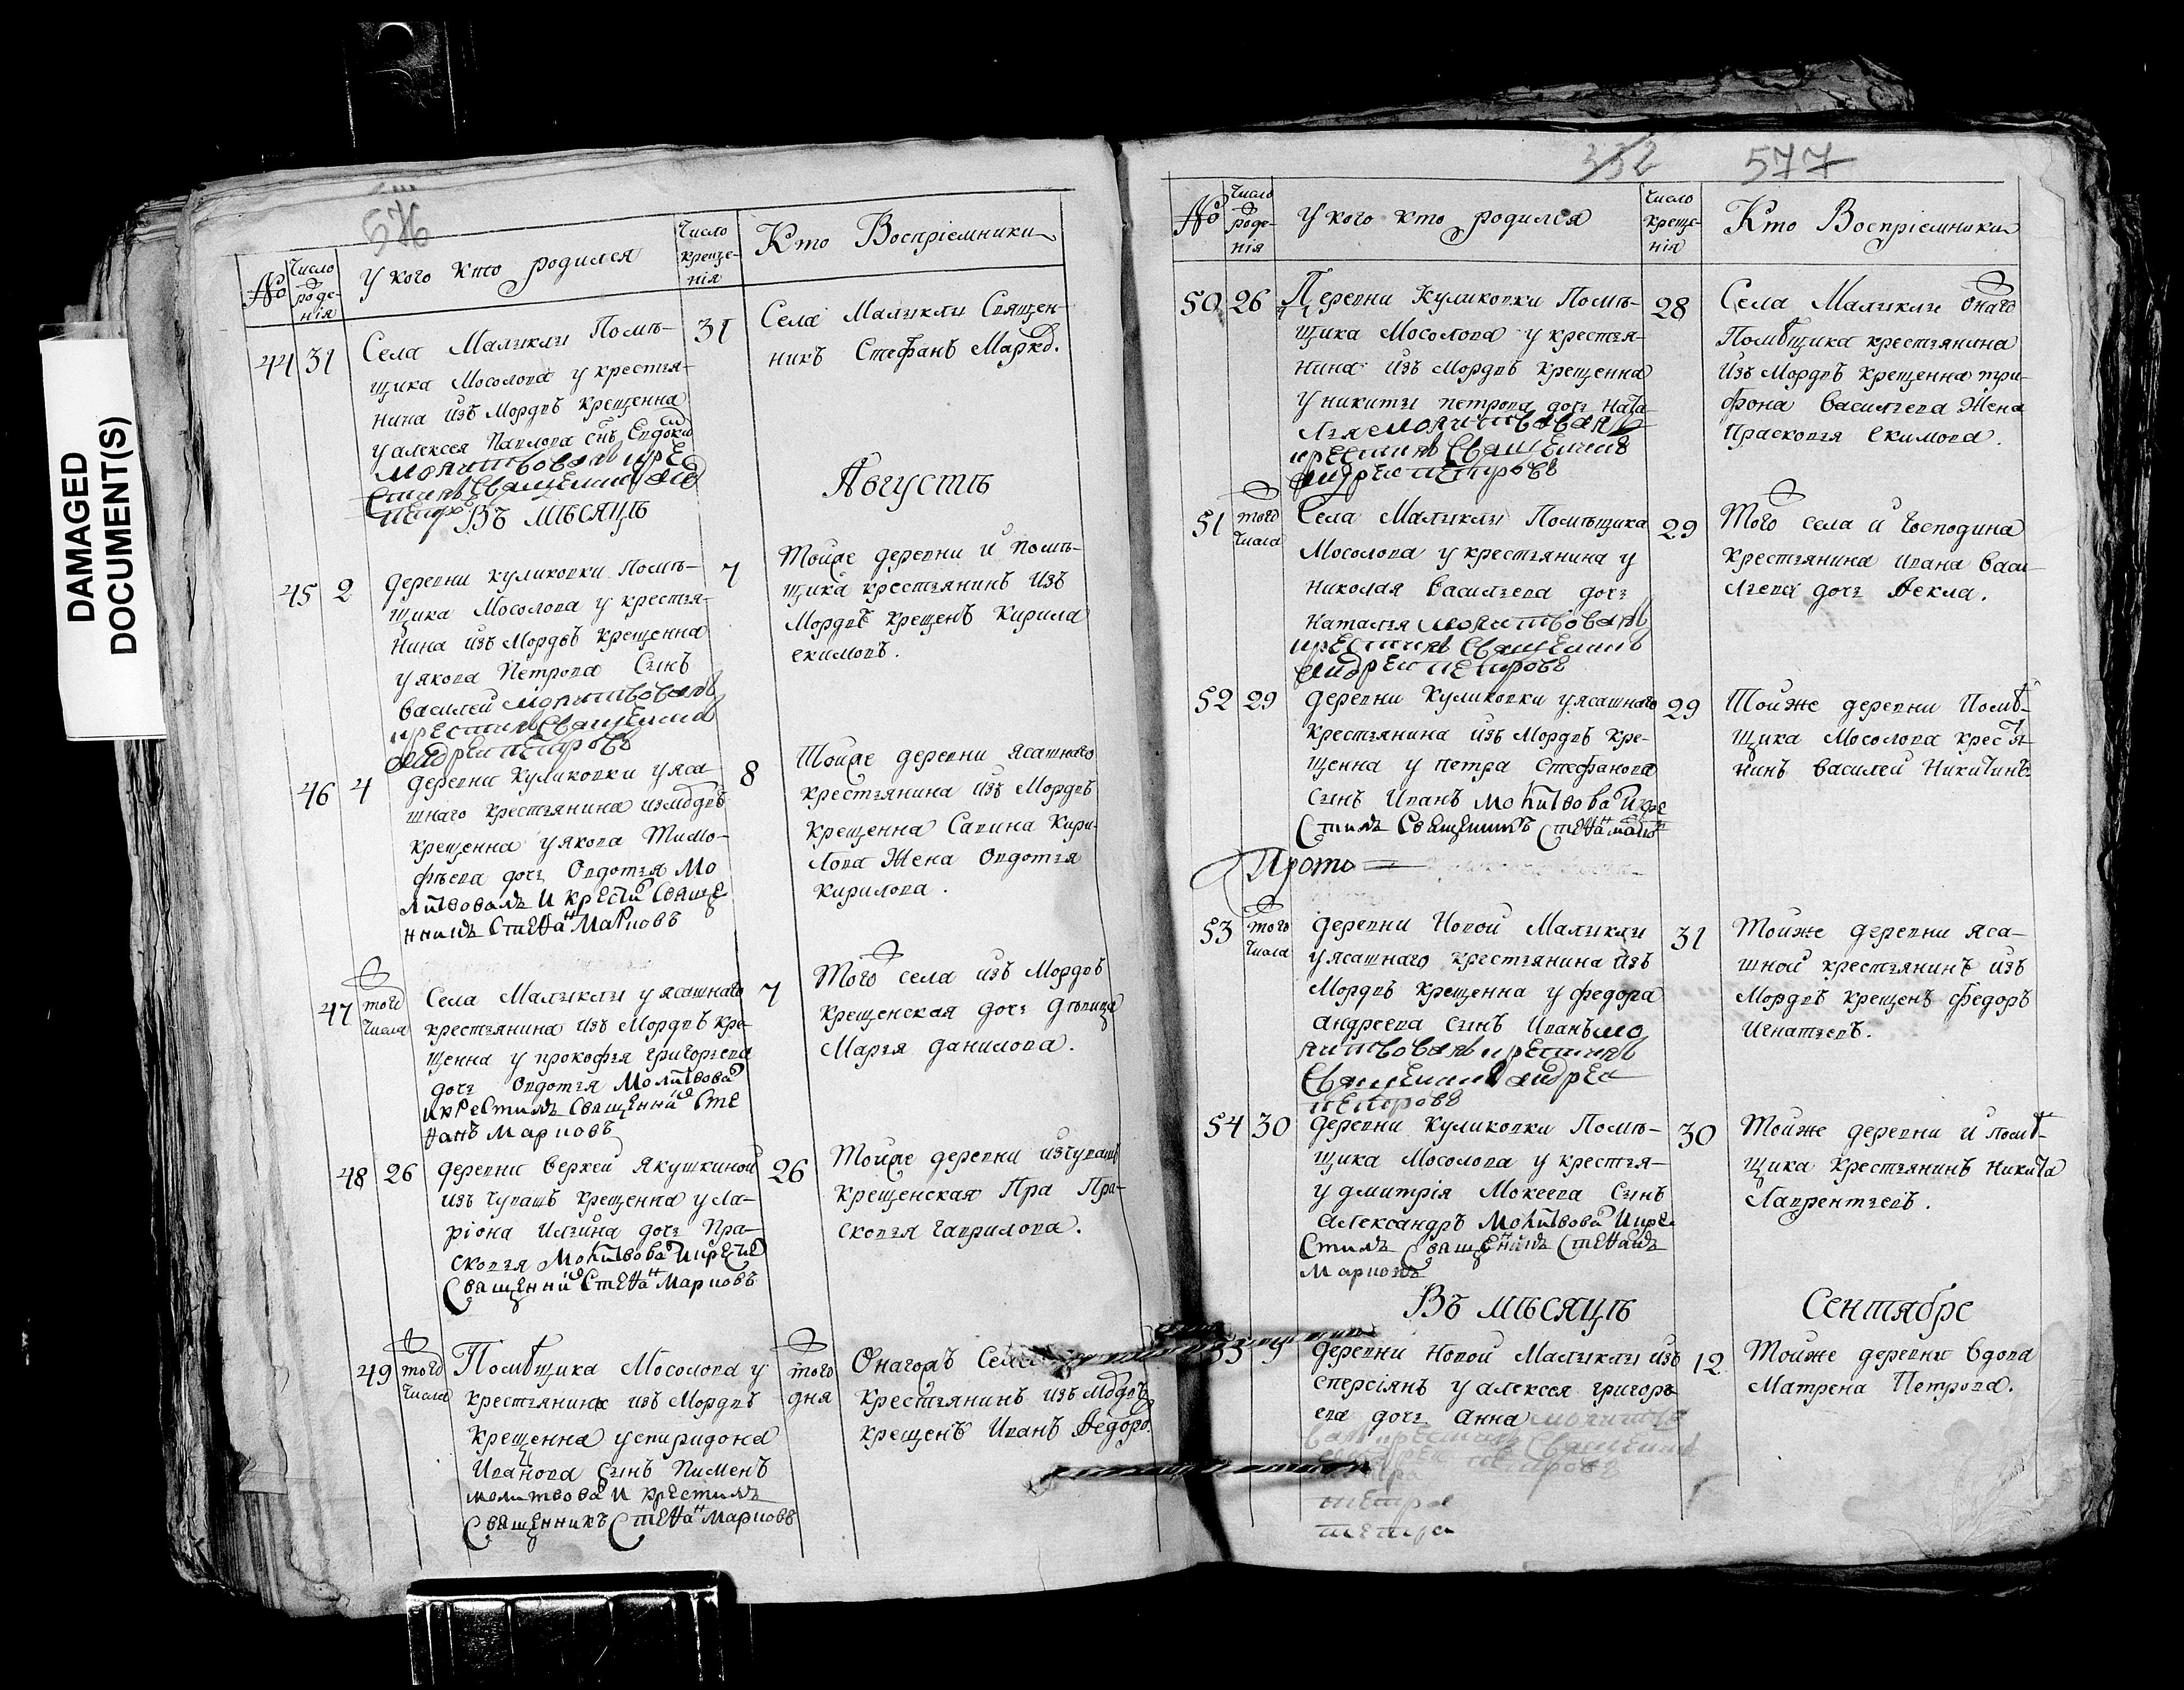 DAMAGED
DOCUMENT(S)
576
№
Число роде-нія
У кого кто родился
Число креще-нія
Кто Воспріемники
44 31
Села Малыклы Помѣ-
щика Мосолова у крестья-
нина изъ Мордвъ крещенна
у алексея Павлова снъ Евдоки
молитвовалъ и кре
стилъ Священникъ
31
Села Малыклы Священ-
никъ Стефанъ Марко.
Въ мѣсяцѣ
Августѣ
45 2
деревни куликовки Помѣ-
щика Мосолова у крестья-
нина изъ Мордвъ крещенна
у якова Петрова Сынъ
василей молитвовалъ
и крестилъ Священни
андреи петровъ
7
Тойже деревни и помѣ-
щика крестьянинъ изъ
Мордвъ крещенъ Кирила
екимовъ.
46 4
деревни Куликовки у яса-
шнаго крестьянина измордвъ
крещенна у якова Тимо-
фѣева дочь Овдотья Мо
литвовалъ и крести Свяще
нникъ Стефанъ Марковъ
8
Тойже деревни ясашнаго
крестьянина изъ Мордвъ
крещенна Савина Кири-
лова Жена Овдотья
кирилова.
47 того числа
Села Малыклы у ясашнаго
крестьянина изъ Мордвъ кре-
щенна у прокофья григорьева
дочь Овдотья Молитвова
и крестилъ Священни Сте
фанъ Марковъ
7
Того села изъ Мордвъ
крещенская дочь дѣвица
Марья данилова.
48 26
деревни верхей Якушкиной
изъ Чувашъ крещенна у Ла-
ріона Ильина дочь Пра-
сковья Молитвова и крести
Священни Стефанъ Марковъ
26
Тойже деревни изчувашъ
крещенская Пра Пра-
сковья гаврилова.
49 того числа
Помѣщика Мосолова у
крестьянина изъ Мордвъ
крещенна успиридона
Иванова сынъ Пименъ
молитвова и крестилъ
Священникъ Стефанъ Марковъ
того дня
крестьянинъ изъ Мордвъ
крещенъ Иванъ Федоро.
332 577
№
Число роде-нія
У кого кто родился
Число креще-нія
Кто Воспріемники
50 26
Деревни Куликовки Помѣ-
щика Мосолова у крестья-
нина изъ Мордвъ крещенна
у никиты петрова дочь Ната-
лья молитвовалъ
и крестилъ Священникъ
андреи петровъ
28
Села Малыклы онаго
Помѣщика крестьянина
Изъ Мордвъ крещенна три-
фона васильева Жена
Прасковья екимова.
51 того числа
Села Малыклы Помѣщика
Мосолова у крестьянина у
николая васильева дочь
наталья молитвовалъ
и крестилъ Священникъ
андреи петровъ
29
Того села и господина
крестьянина ивана васи-
льева дочь Фекла.
52 29
деревни Куликовки у ясашнаго
крестьянина изъ Мордвъ кре-
щенна у петра Стефанова
сынъ Иванъ Молитвова и кре
стилъ Священникъ Стефанъ
29
Тойже деревни Помѣ-
щика Мосолова крестья-
нинъ василей Никитинъ
53 того числа
деревни Новой Малыклы
у ясашнаго крестьянина изъ
Мордвъ крещенна у федора
андреева сынъ Иванъ мо
литвовалъ и крестилъ
Священникъ андреи
петровъ
31
Тойже деревни яса-
шной крестьянинъ изъ
Мордвъ крещенъ федоръ
Игнатьевъ.
54 30
деревни Куликовки Помѣ-
щика Мосолова у крестья-
у дмитрія Мокеева Сынъ
александръ Молитвова и кре
стилъ Священникъ Стефанъ
Марковъ
30
Тойже деревни и помѣ-
щика крестьянинъ Никита
Лаврентьевъ.
Въ мѣсяцѣ
Сентябре
55 9
деревни Новой Малыклы изъ
сперсіянъ у алексея григорь-
ева дочь анна молитво
валъ крестилъ Священникъ
андреи петровъ
12
Тойже деревни вдова
Матрена Петрова.
петра